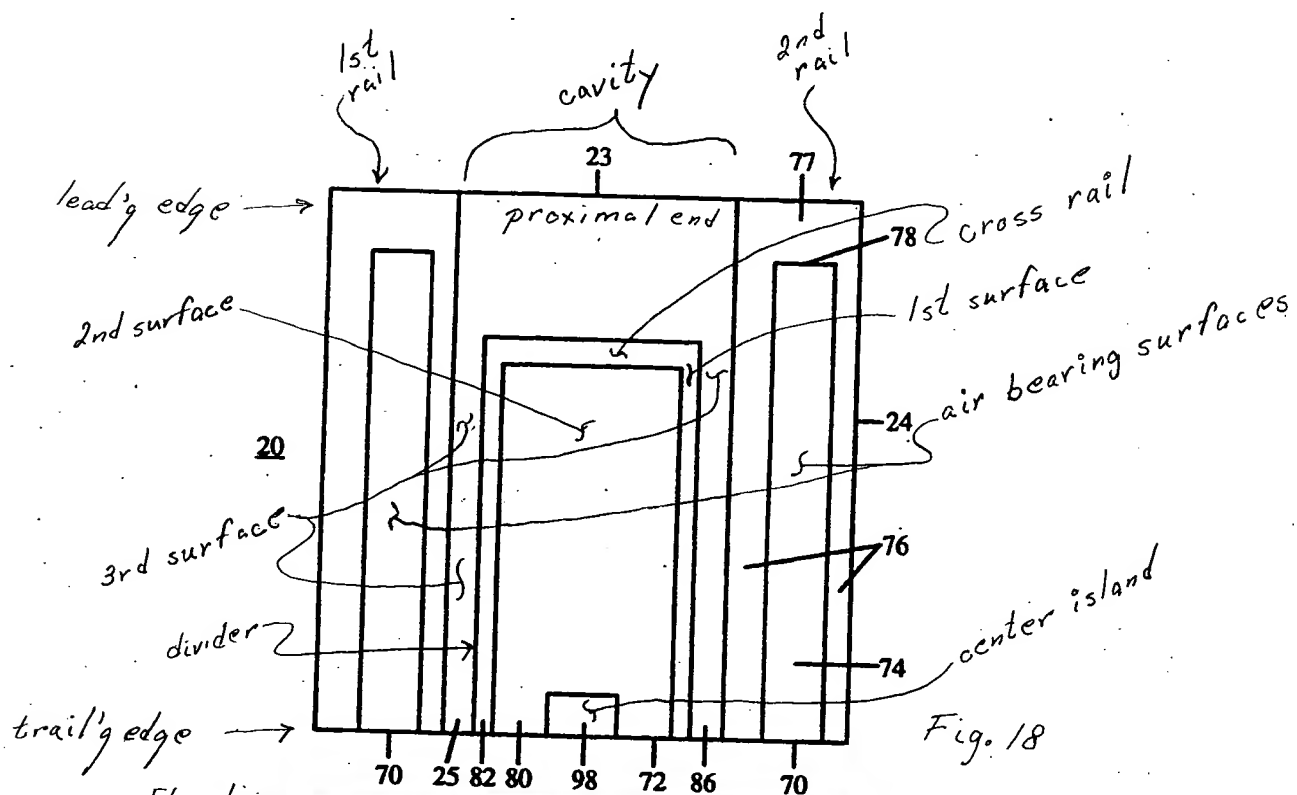 1st
rail
cavity
2nd
rail
23
77
lead'g edge
proximal end
78
cross rail
2nd surface
1st surface
air bearing surfaces
24
20
3rd surface
76
center island
divider
74
trail'g edge
Fig. 18
70 25 82 80 98 72 86 70